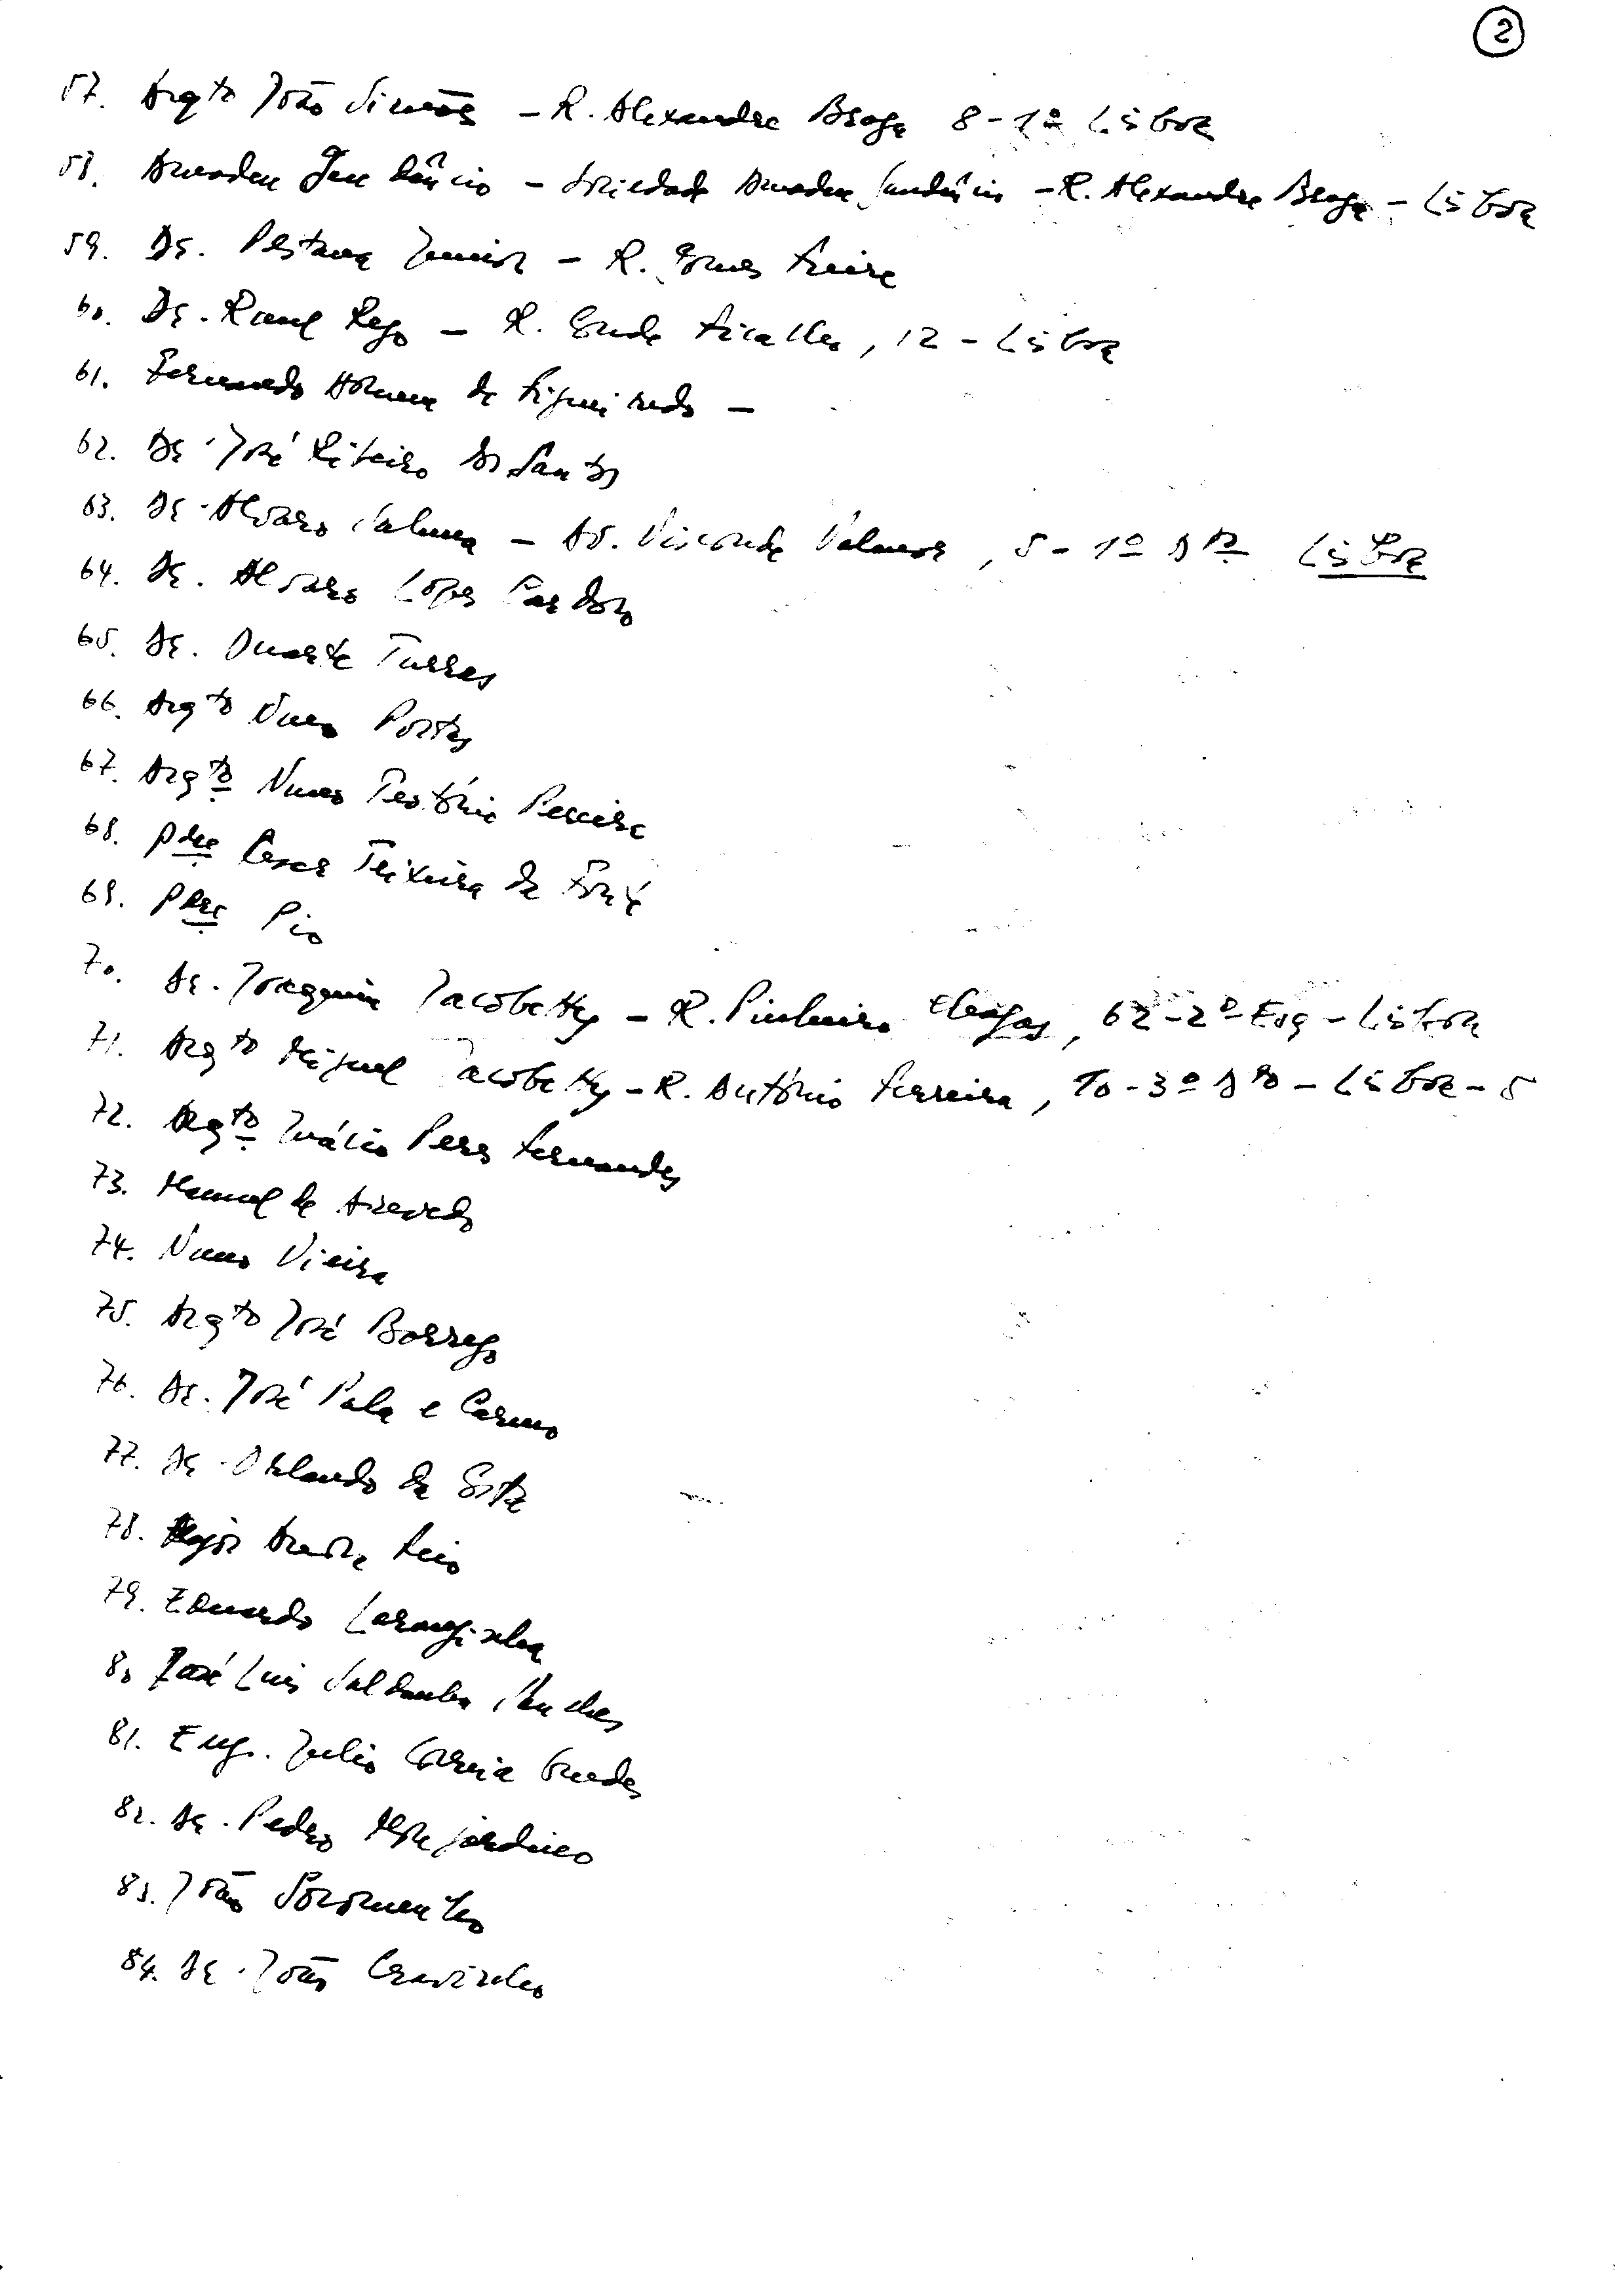 2
57. Arqto João Simões - R. Alexandre Braga 8-1º Lisboa
58. Amadeu Gaudêncio - Sociedade Amadeu Gaudêncio - R. Alexandre Braga - Lisboa
59. Dr. Pestana Junior - R. Gomes Freire
60. Dr. Raul Rego - R. Conde Ficalho, 12 - Lisboa
61. Fernando Homem de Figueiredo -
62. Dr. José Ribeiro dos Santos
63. Dr. Alvaro Salema - Av. Visconde Valmor, 5-1º Dto Lisboa
64. Dr. Alvaro Lopes Cardoso
65. Dr. Duarte Turras
66. Arqto Nuno Portas
67. Arqto Nuno Teotónio Pereira
68. Pdre Cesar Teixeira da Fonte
69. Pdre Pio
70. Dr. Joaquim Jacobetty - R. Pinheiro Chagas, 62-2º Esq - Lisboa
71. Arqto Miguel Jacobetty - R. António Ferreira, 10-3º Dto - Lisboa - 5
72. Arqto Inácio Peres Fernandes
73. Manuel de Azevedo
74. Nuno Vieira
75. Arqto José Borrego
76. Dr. José Pala e Carmo
77. Dr. Orlando da Costa
78. Major
79. Eduardo Laranjinha
80 José Luis Saldanha Sanches
81. Eng. Julio Correia Guedes
82. Dr. Pedro Monjardino
83. João Soromenho
84. Dr. João Cravinho